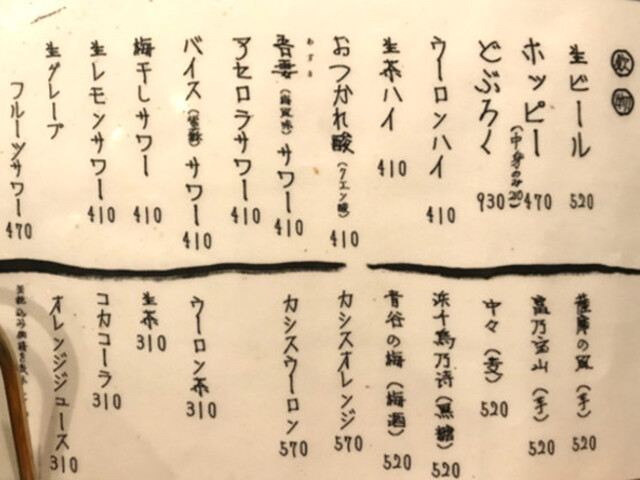 飲物
生ビール 520
ホッピー 470
(中身のみ 210)
どぶろく 930
ウーロンハイ 410
生茶ハイ 410
おつかれ酸(クエン酸) 410
吾妻 サワー 410
あずま
アセロラサワー 410
バイス サワー 410
梅干しサワー 410
生レモンサワー 410
生グレープ
フルーツサワー 470
薩摩の (芋) 520
富乃宝山(芋) 520
中々(麦) 520
浜千鳥乃詩(黒糖) 520
青谷の梅(梅酒) 520
カシスオレンジ 570
カシスウーロン 570
ウーロン茶 310
生茶 310
コカコーラ 310
オレンジジュース 310